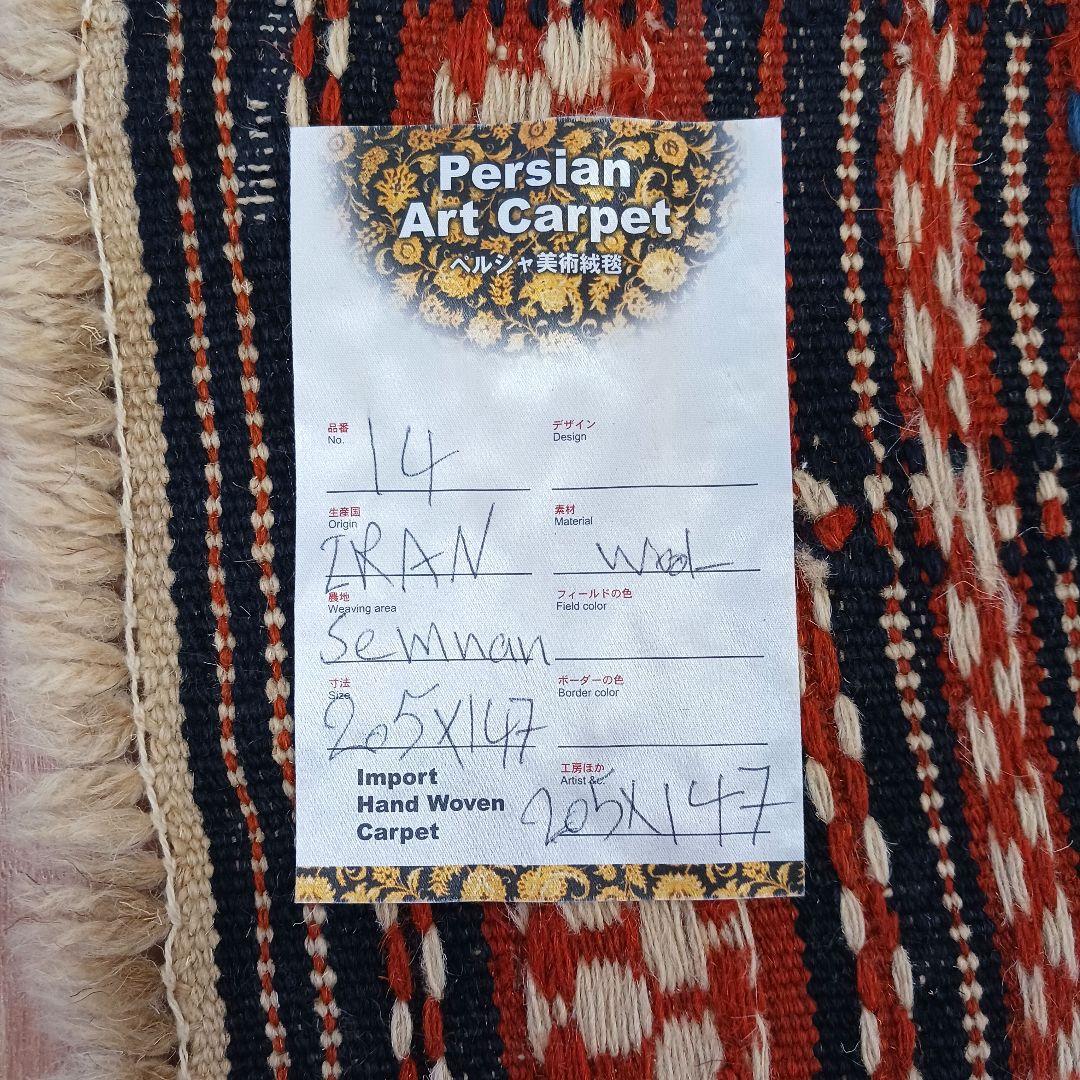 Persian
Art Carpet
ペルシャ美術絨毯
品番
No. 14
デザイン
Design
生産国
Origin
IRAN
素材
Material
Wool
農地
Weaving area
Semnan
フィールドの色
Field color
寸法
Size
205X147
ボーダーの色
Border color
Import
Hand Woven
Carpet
工房ほか
Artist &c.
205X147